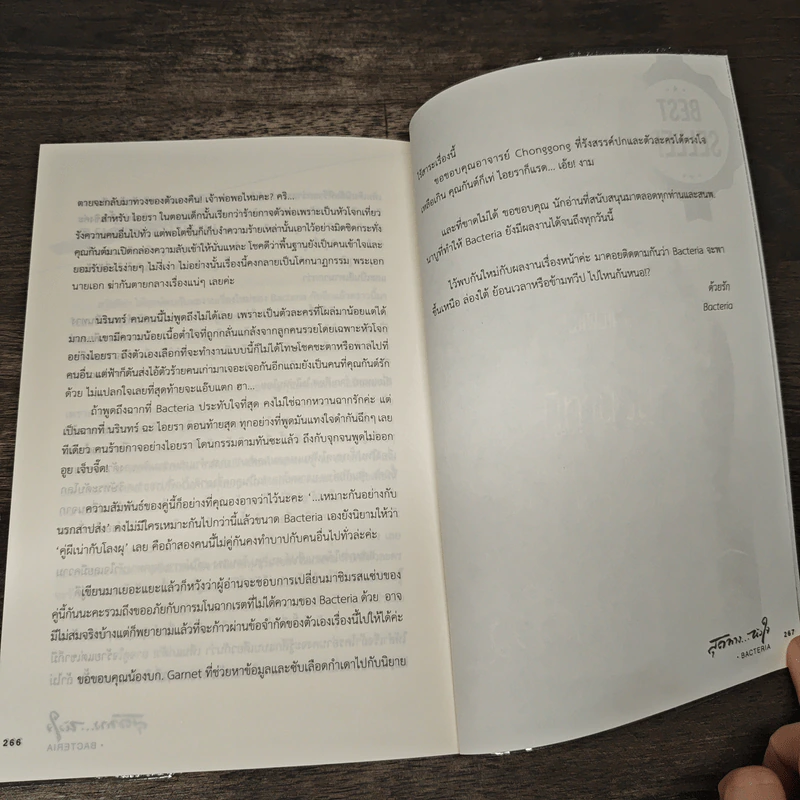 ตายจะกลับมาทวงของตัวเองคืน! เจ้าพ่อพอไหมคะ? คริ...
สำหรับ ไอยรา ในตอนเด็กนั้นเรียกว่าร้ายกาจตัวพ่อเพราะเป็นหัวโจกเที่ยว
รังควานคนอื่นไปทั่ว แต่พอโตขึ้นก็เก็บงำความร้ายเหล่านั้นเอาไว้อย่างมิดชิดกระทั่ง
คุณกันต์มาเปิดกล่องความลับเข้าให้นั่นแหละ โชคดีว่าพื้นฐานยังเป็นคนเข้าใจและ
ยอมรับอะไรง่ายๆ ไม่งี่เง่า ไม่อย่างนั้นเรื่องนี้คงกลายเป็นโศกนาฏกรรม พระเอก
นายเอก ฆ่ากันตายกลางเรื่องแน่ๆ เลยค่ะ
นรินทร์ คนคนนี้ไม่พูดถึงไม่ได้เลย เพราะเป็นตัวละครที่โผล่มาน้อยแต่ได้
มาก... เขามีความน้อยเนื้อต่ำใจที่ถูกกลั่นแกล้งจากลูกคนรวยโดยเฉพาะหัวโจก
อย่างไอยรา ถึงตัวเองเลือกที่จะทำงานแบบนี้ก็ไม่ได้โทษโชคชะตาหรือพาลไปที่
คนอื่น แต่ฟ้าก็ดันส่งไอ้ตัวร้ายคนเก่ามาเจอะเจอกันอีกแถมยังเป็นคนที่คุณกันต์รัก
ด้วย ไม่แปลกใจเลยที่สุดท้ายจะแอ๊บแตก ฮา...
ถ้าพูดถึงฉากที่ Bacteria ประทับใจที่สุด คงไม่ใช่ฉากหวานฉากรักค่ะ แต่
เป็นฉากที่ นรินทร์ ฉะ ไอยรา ตอนท้ายสุด ทุกอย่างที่พูดมันแทงใจดำกันฉึกๆ เลย
ทีเดียว คนร้ายกาจอย่างไอยรา โดนกรรมตามทันซะแล้ว ถึงกับจุกจนพูดไม่ออก
อูย เจ็บจี๊ด!
ความสัมพันธ์ของคู่นี้ก็อย่างที่คุณองอาจว่าไว้นะคะ ‘...เหมาะกันอย่างกับ
นรกสาปส่ง’ คงไม่มีใครเหมาะกันไปกว่านี้แล้วขนาด Bacteria เองยังนิยามให้ว่า
‘คู่ผีเน่ากับโลงผุ’ เลย คือถ้าสองคนนี้ไม่คู่กันคงทำบาปกับคนอื่นไปทั่วล่ะค่ะ
เขียนมาเยอะแยะแล้วก็หวังว่าผู้อ่านจะชอบการเปลี่ยนมาชิมรสแซ่บของ
คู่นี้กันนะคะรวมถึงขออภัยกับการมโนฉากเรตที่ไม่ได้ความของ Bacteria ด้วย อาจ
มีไม่สมจริงบ้างแต่ก็พยายามแล้วที่จะก้าวผ่านข้อจำกัดของตัวเองเรื่องนี้ไปให้ได้ค่ะ
ขอขอบคุณน้องบก. Garnet ที่ช่วยหาข้อมูลและซับเลือดกำเดาไปกับนิยาย
266
ไร้สาระเรื่องนี้
ขอขอบคุณอาจารย์ Chonggong ที่รังสรรค์ปกและตัวละครได้ตรงใจ
เหลือเกิน คุณกันต์ก็เท่ ไอยราก็แรด... เอ้ย! งาม
และที่ขาดไม่ได้ ขอขอบคุณ นักอ่านที่สนับสนุนมาตลอดทุกท่านและสนพ.
นาบูที่ทำให้ Bacteria ยังมีผลงานได้จนถึงทุกวันนี้
ไว้พบกันใหม่กับผลงานเรื่องหน้าค่ะ มาคอยติดตามกันว่า Bacteria จะพา
ขึ้นเหนือ ล่องใต้ ย้อนเวลาหรือข้ามทวีป ไปไหนกันหนอ!?
ด้วยรัก
Bacteria
สุดทาง...หัวใจ
• BACTERIA
267